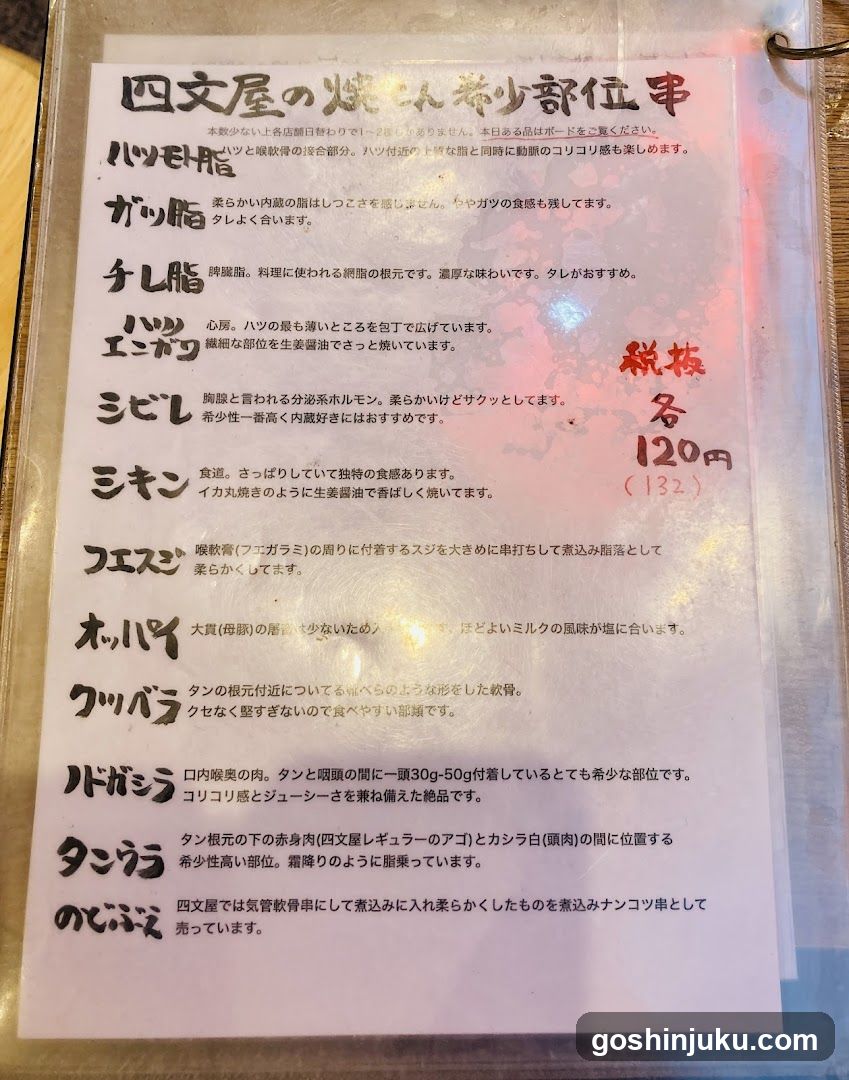 四文屋の焼とん希少部位串
本数少ない上各店舗日替わりで1〜2種しかありません。本日ある品はボードをご覧ください。
ハツモト脂 ハツと喉軟骨の接合部分。ハツ付近の上質な脂と同時に動脈のコリコリ感も楽しめます。
ガツ脂 柔らかい内蔵の脂はしつこさを感じません。ややガツの食感も残してます。
タレよく合います。
チレ脂 脾臓脂。料理に使われる網脂の根元です。濃厚な味わいです。タレがおすすめ。
ハツ
エンガワ
心房。ハツの最も薄いところを包丁で広げています。
繊細な部位を生姜醤油でさっと焼いています。
税抜
各
120円
(132)
シビレ 胸腺と言われる分泌系ホルモン。柔らかいけどサクッとしてます。
希少性一番高く内蔵好きにはおすすめです。
シキン 食道。さっぱりしていて独特の食感あります。
イカ丸焼きのように生姜醤油で香ばしく焼いてます。
フエスジ 喉軟膏(フエガラミ)の周りに付着するスジを大きめに串打ちして煮込み脂落として
柔らかくしてます。
オッパイ 大貫(母豚)の屠畜は少ないため入 ほどよいミルクの風味が塩に合います。
クツベラ タンの根元付近についてる靴べらのような形をした軟骨。
クセなく堅すぎないので食べやすい部類です。
ノドガシラ 口内喉奥の肉。タンと咽頭の間に一頭30g-50g付着しているとても希少な部位です。
コリコリ感とジューシーさを兼ね備えた絶品です。
タンウラ タン根元の下の赤身肉(四文屋レギュラーのアゴ)とカシラ白(頭肉)の間に位置する
希少性高い部位。霜降りのように脂乗っています。
のどぶえ 四文屋では気管軟骨串にして煮込みに入れ柔らかくしたものを煮込みナンコツ串として
売っています。
goshinjuku.com